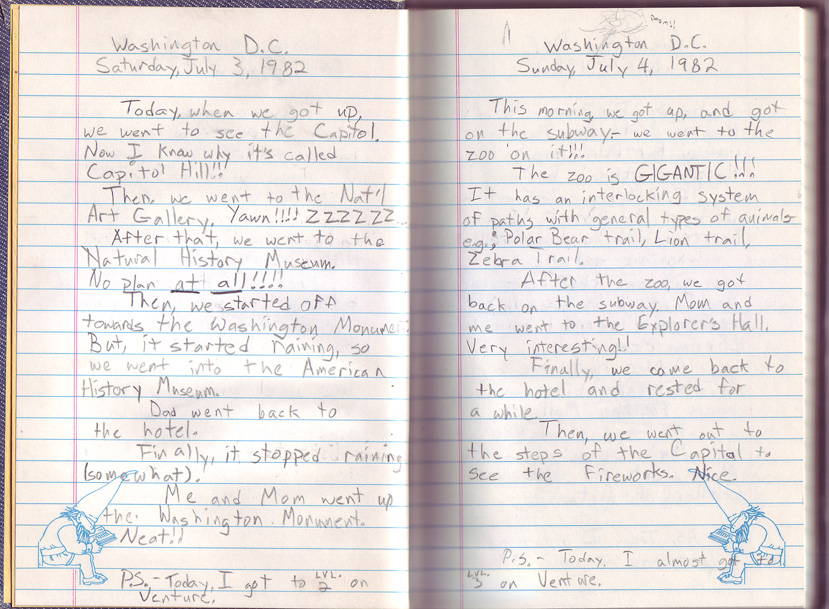 Washington D.C.
Saturday, July 3, 1982
Today, when we got up,
we went to see the Capitol.
Now I know why it's called
Capitol Hill!!
Then, we went to the Nat'l
Art Gallery, Yawn!!!! ZZZZZZ
After that, we went to the
Natural History Museum.
No plan at all!!!!
Then, we started off
towards the Washington Monume
But, it started raining, so
we went into the American
History Museum.
Dad went back to
the hotel.
Finally, it stopped raining
(somewhat).
Me and Mom went up
the Washington Monument.
Neat!!
P.S.- Today, I got to LVL. 2 on
Venture.
Washington D.C.
Sunday, July 4, 1982
This morning, we got up, and got
on the subway- we went to the
zoo on it!!!
The zoo is GIGANTIC!!!
It has an interlocking system
of paths with general types of animals
e.g.; Polar Bear trail, Lion trail,
Zebra Trail.
After the zoo, we got
back on the subway. Mom and
me went to the Explorer's Hall.
Very interesting!!
Finally, we came back to
the hotel and rested for
a while
Then, we went out to
the steps of the Capital to
see the Fireworks. Nice.
P.S.- Today, I almost got to
LVL. 3 on Venture.